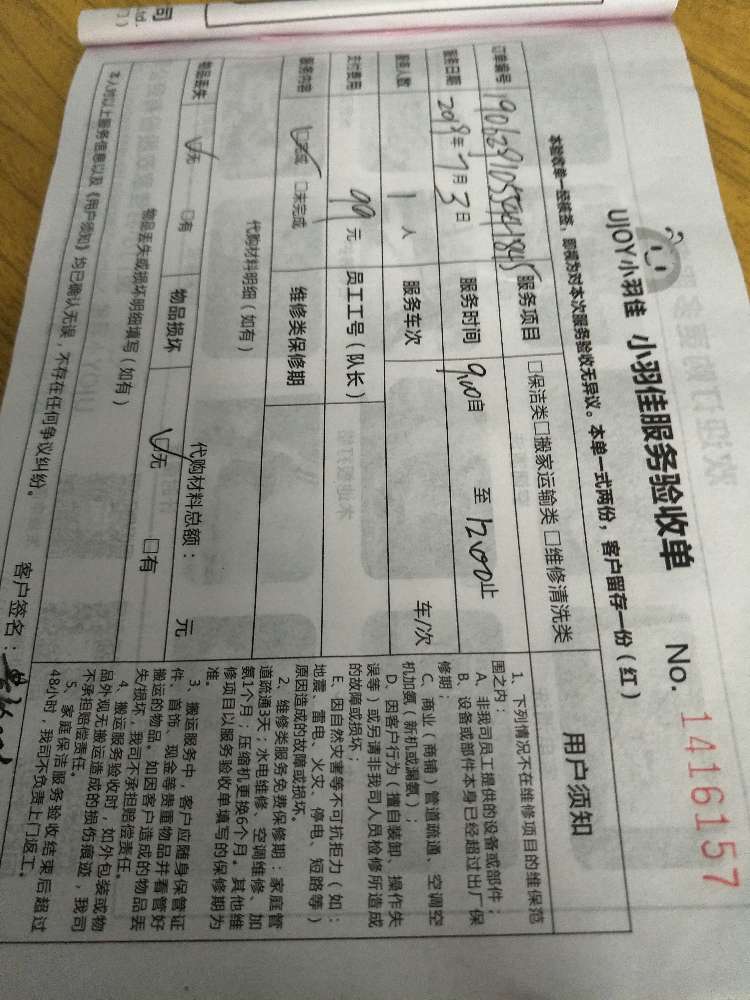 司
Ltd.
UJOY小羽佳 小羽佳服务验收单 No. 1416157
本验收单一经核签，即视为对本次服务验收无异议。本单一式两份，客户留存一份（红）
订单编号 服务项目 □保洁类□搬家运输类 □维修清洗类
服务日期 2019年7月3日 服务时间 9:00自 至 12:00止
服务人数 1 人 服务车次 车/次
支付费用 99 元 员工工号（队长）
服务内容 ☑完成 □未完成 维修类保修期
代购材料明细（如有） 代购材料总额： 元
物品丢失 ☑无 □有 物品损坏 ☑无 □有
物品丢失或损坏明细填写（如有）
本人对以上服务信息以及《用户须知》均已确认无误，不存在任何争议纠纷。
客户签名：
用户须知
1、下列情况不在维修项目的维保范
围之内：
A、非我司员工提供的设备或部件；
B、设备或部件本身已经超过出厂保
修期；
C、商业（商铺）管道疏通、空调空
机加氨（新机或漏氨）；
D、因客户行为（擅自装卸、操作失
误等）或另请非我司人员检修所造成
的故障或损坏；
E、因自然灾害等不可抗拒力（如：
地震、雷电、火灾、停电、短路等）
原因造成的故障或损坏。
2、维修类服务免费保修期：家庭管
道疏通3天；水电维修、空调维修、加
氨1个月；压缩机更换6个月。其他维
修项目以服务验收单填写的保修期为
准。
3、搬运服务中，客户应随身保管证
件、首饰、现金等贵重物品并看管好
搬运的物品。如因客户造成的物品丢
失/损坏，我司不承担赔偿责任。
4、搬运服务验收时，如外包装或物
品外观无搬运造成的损伤痕迹，我司
不承担赔偿责任。
5、家庭保洁服务验收结束后超过
48小时，我司不负责上门返工。